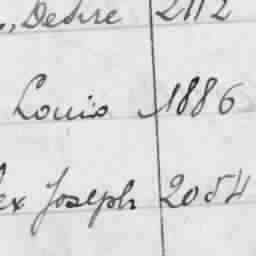 ., Desire 2112
Louis 1886
ex Joseph 2054